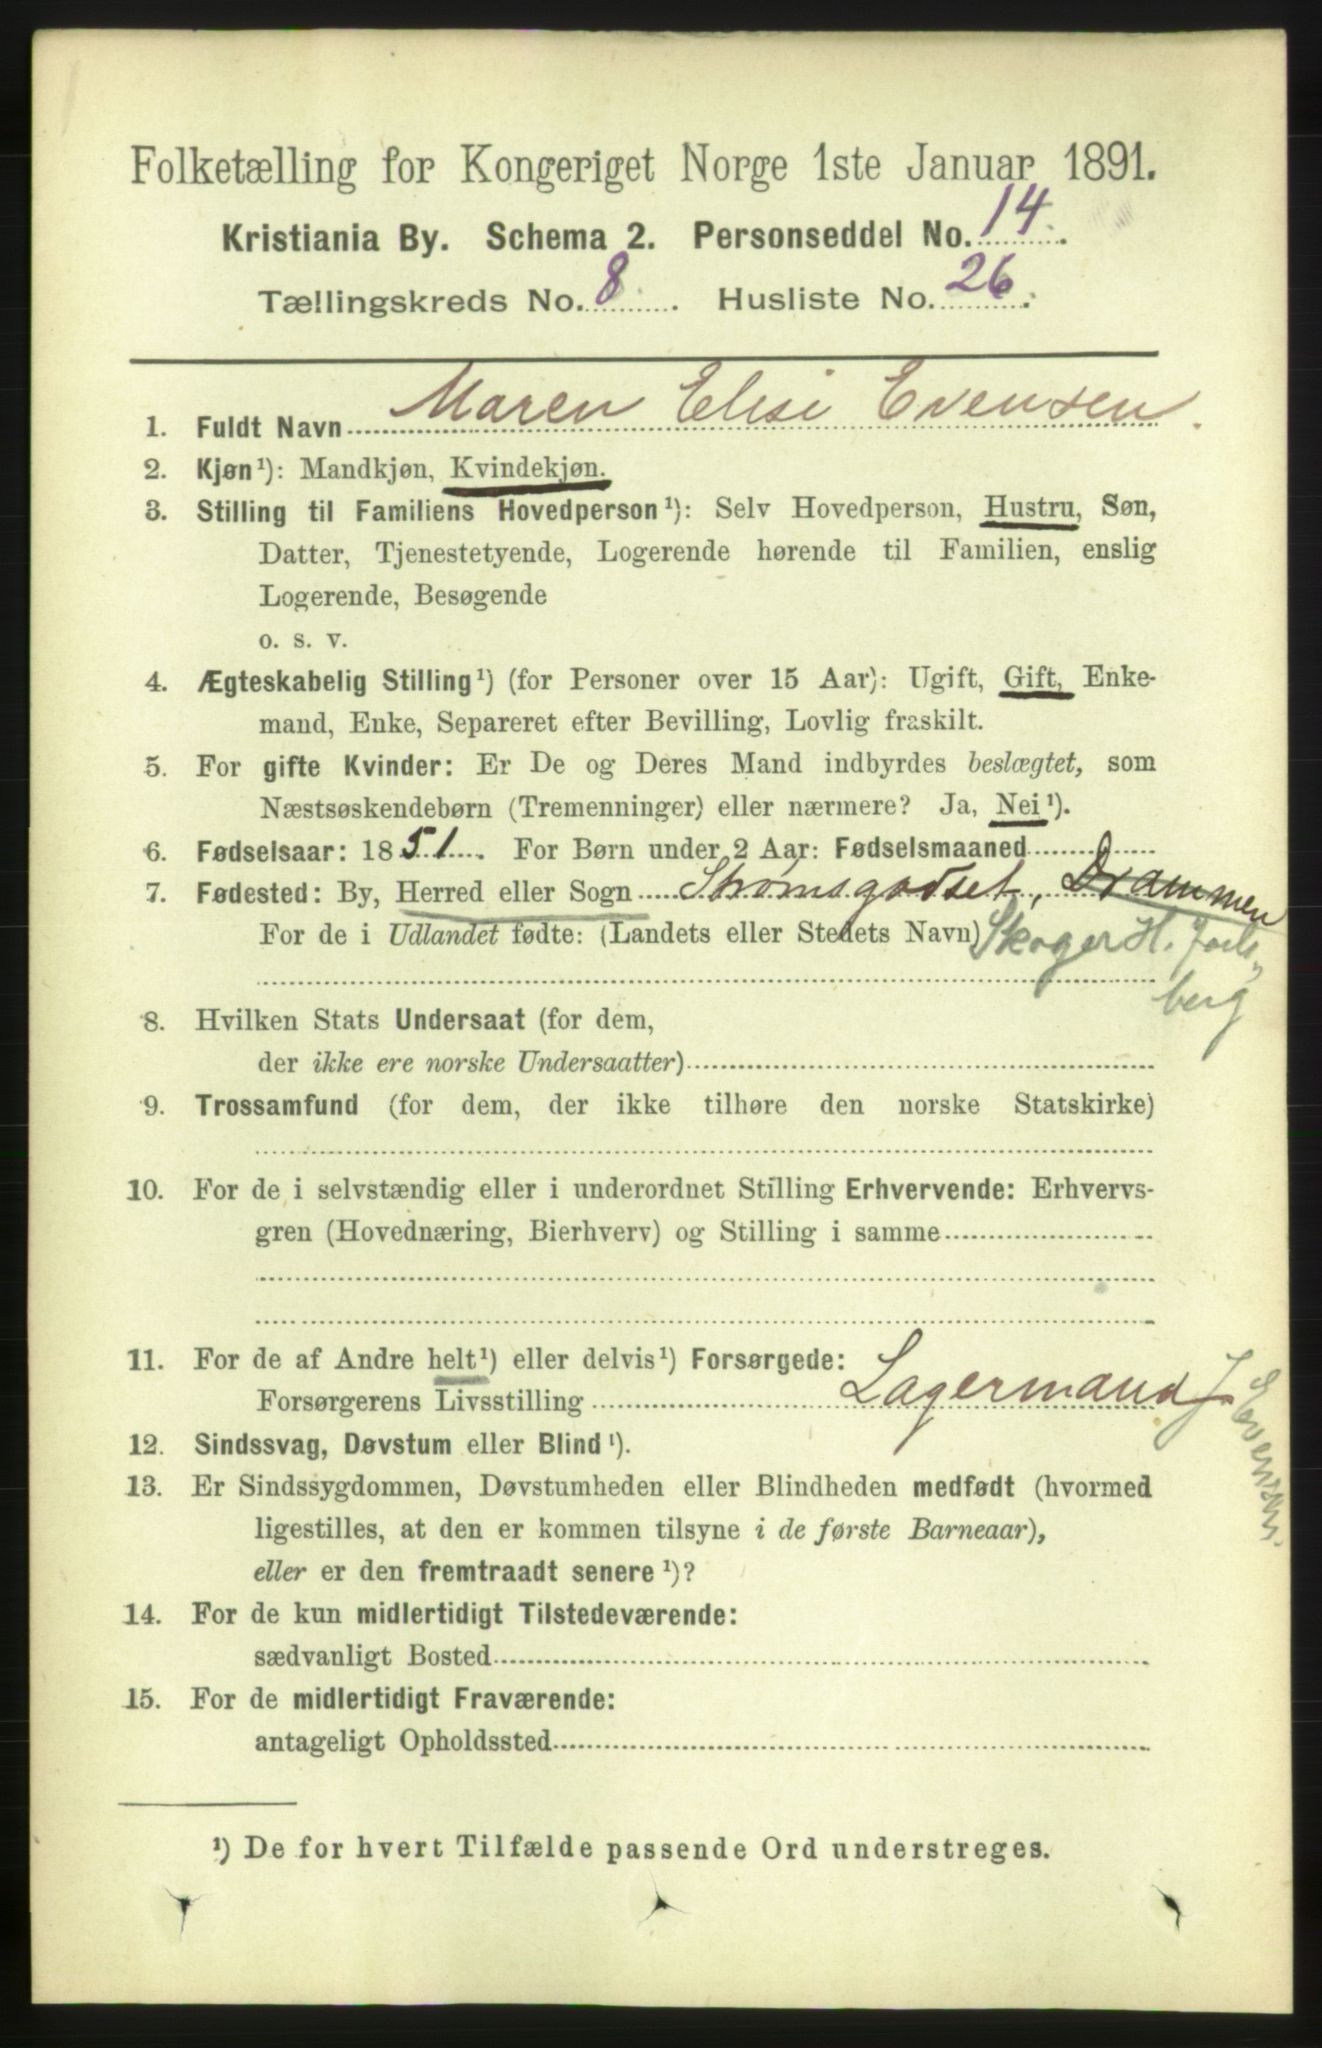 Folketælling for Kongeriget Norge 1ste Januar 1891.
Kristiania By. Schema 2. Personseddel No. 14.
Tællingskreds No. 8. Husliste No. 26.
1. Fuldt Navn Maren Elisi Evensen.
2. Kjøn¹): Mandkjøn, Kvindekjøn.
3. Stilling til Familiens Hovedperson¹): Selv Hovedperson, Hustru, Søn,
Datter, Tjenestetyende, Logerende hørende til Familien, enslig
Logerende, Besøgende
o. s. v.
4. Ægteskabelig Stilling¹) (for Personer over 15 Aar): Ugift, Gift, Enke-
mand, Enke, Separeret efter Bevilling, Lovlig fraskilt.
5. For gifte Kvinder: Er De og Deres Mand indbyrdes beslægtet, som
Næstsøskendebørn (Tremenninger) eller nærmere? Ja, Nei¹).
6. Fødselsaar: 1851. For Børn under 2 Aar: Fødselsmaaned
7. Fødested: By, Herred eller Sogn Strømsgodset, Drammen
For de i Udlandet fødte: (Landets eller Stedets Navn) Skoger H. Jarls-
berg
8. Hvilken Stats Undersaat (for dem,
der ikke ere norske Undersaatter)
9. Trossamfund (for dem, der ikke tilhøre den norske Statskirke)
10. For de i selvstændig eller i underordnet Stilling Erhvervende: Erhvervs-
gren (Hovednæring, Bierhverv) og Stilling i samme
11. For de af Andre helt¹) eller delvis¹) Forsørgede:
Forsørgerens Livsstilling Lagermand J. Evensen.
12. Sindssvag, Døvstum eller Blind¹).
13. Er Sindssygdommen, Døvstumheden eller Blindheden medfødt (hvormed
ligestilles, at den er kommen tilsyne i de første Barneaar),
eller er den fremtraadt senere¹)?
14. For de kun midlertidigt Tilstedeværende:
sædvanligt Bosted
15. For de midlertidigt Fraværende:
antageligt Opholdssted
¹) De for hvert Tilfælde passende Ord understreges.